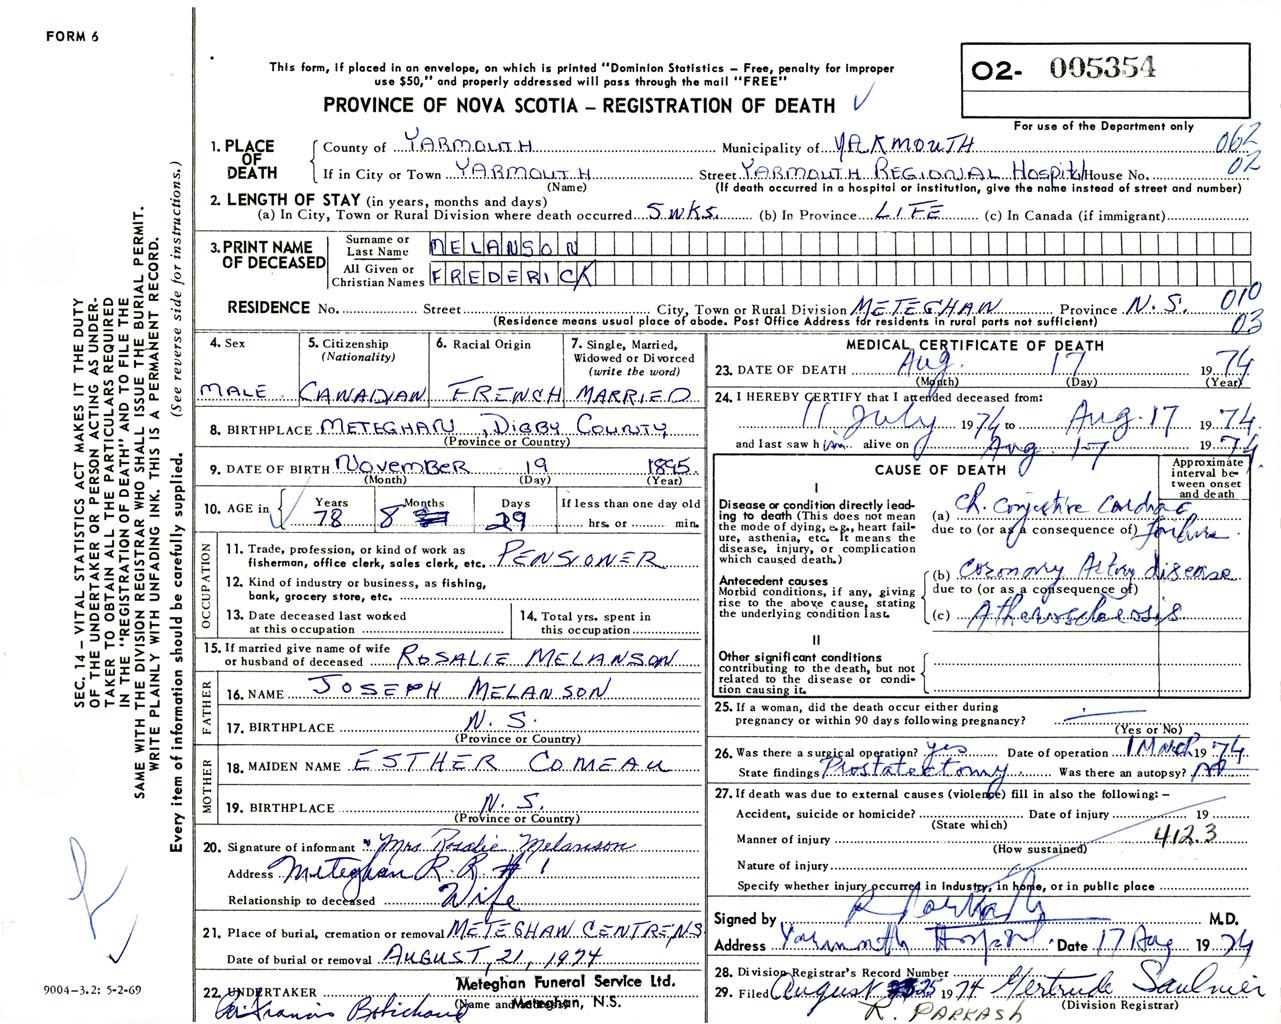 FORM 6
This form, if placed in an envelope, on which is printed "Dominion Statistics – Free, penalty for improper
use $50," and properly addressed will pass through the mail "FREE"
PROVINCE OF NOVA SCOTIA – REGISTRATION OF DEATH
O2- 005354
For use of the Department only
1. PLACE OF DEATH
County of YARMOUTH Municipality of YARMOUTH 062
If in City or Town YARMOUTH Street YARMOUTH REGIONAL HOSPITAL House No. 02
(Name) (If death occurred in a hospital or institution, give the name instead of street and number)
2. LENGTH OF STAY (in years, months and days)
(a) In City, Town or Rural Division where death occurred 5 WKS. (b) In Province LIFE (c) In Canada (if immigrant)
3. PRINT NAME OF DECEASED
Surname or Last Name MELANSON
All Given or Christian Names FREDERICK
RESIDENCE No. Street City, Town or Rural Division METEGHAN Province N.S. 010
(Residence means usual place of abode. Post Office Address for residents in rural parts not sufficient) 03
4. Sex MALE
5. Citizenship (Nationality) CANADIAN
6. Racial Origin FRENCH
7. Single, Married, Widowed or Divorced (write the word) MARRIED
8. BIRTHPLACE METEGHAN, DIGBY COUNTY
(Province or Country)
9. DATE OF BIRTH NOVEMBER 19 1895
(Month) (Day) (Year)
10. AGE in Years 78 Months 8 Days 29 If less than one day old hrs. or min.
OCCUPATION
11. Trade, profession, or kind of work as
fisherman, office clerk, sales clerk, etc. PENSIONER
12. Kind of industry or business, as fishing,
bank, grocery store, etc.
13. Date deceased last worked
at this occupation
14. Total yrs. spent in
this occupation
15. If married give name of wife
or husband of deceased ROSALIE MELANSON
FATHER
16. NAME JOSEPH MELANSON
17. BIRTHPLACE N.S.
(Province or Country)
MOTHER
18. MAIDEN NAME ESTHER COMEAU
19. BIRTHPLACE N.S.
(Province or Country)
20. Signature of informant Mrs. Rosalie Melanson
Address Meteghan R.R. # 1
Relationship to deceased Wife
21. Place of burial, cremation or removal METEGHAN CENTRE, N.S.
Date of burial or removal AUGUST, 21, 1974
22. UNDERTAKER Meteghan Funeral Service Ltd.
(Name and Meteghan, N.S.
MEDICAL CERTIFICATE OF DEATH
23. DATE OF DEATH Aug. 17 1974
(Month) (Day) (Year)
24. I HEREBY CERTIFY that I attended deceased from:
11 July 1974 to Aug. 17 1974
and last saw him alive on Aug 17 1974
CAUSE OF DEATH
Approximate interval between onset and death
I
Disease or condition directly leading to death (This does not mean the mode of dying, e.g., heart failure, asthenia, etc. It means the disease, injury, or complication which caused death.)
(a) Ch. Conjective Cardiac
due to (or as a consequence of) failure
Antecedent causes
Morbid conditions, if any, giving rise to the above cause, stating the underlying condition last.
(b) Coronary Artery disease
due to (or as a consequence of)
(c) Atherosclerosis
II
Other significant conditions
contributing to the death, but not related to the disease or condition causing it.
25. If a woman, did the death occur either during
pregnancy or within 90 days following pregnancy?
(Yes or No)
26. Was there a surgical operation? Yes Date of operation 1 March 1974
State findings Prostatectomy Was there an autopsy? No
27. If death was due to external causes (violence) fill in also the following: –
Accident, suicide or homicide? Date of injury 19
(State which)
Manner of injury 412.3
(How sustained)
Nature of injury
Specify whether injury occurred in Industry, in home, or in public place
Signed by R Parkash M.D.
Address Yarmouth Hospital Date 17 Aug 1974
28. Division Registrar's Record Number
29. Filed August 25 1974 Gertrude Saulnier
(Division Registrar)
R. PARKASH
SEC. 14 – VITAL STATISTICS ACT MAKES IT THE DUTY
OF THE UNDERTAKER OR PERSON ACTING AS UNDER-
TAKER TO OBTAIN ALL THE PARTICULARS REQUIRED
IN THE "REGISTRATION OF DEATH" AND TO FILE THE
SAME WITH THE DIVISION REGISTRAR WHO SHALL ISSUE THE BURIAL PERMIT.
WRITE PLAINLY WITH UNFADING INK. THIS IS A PERMANENT RECORD.
Every item of information should be carefully supplied. (See reverse side for instructions.)
9004-3.2: 5-2-69